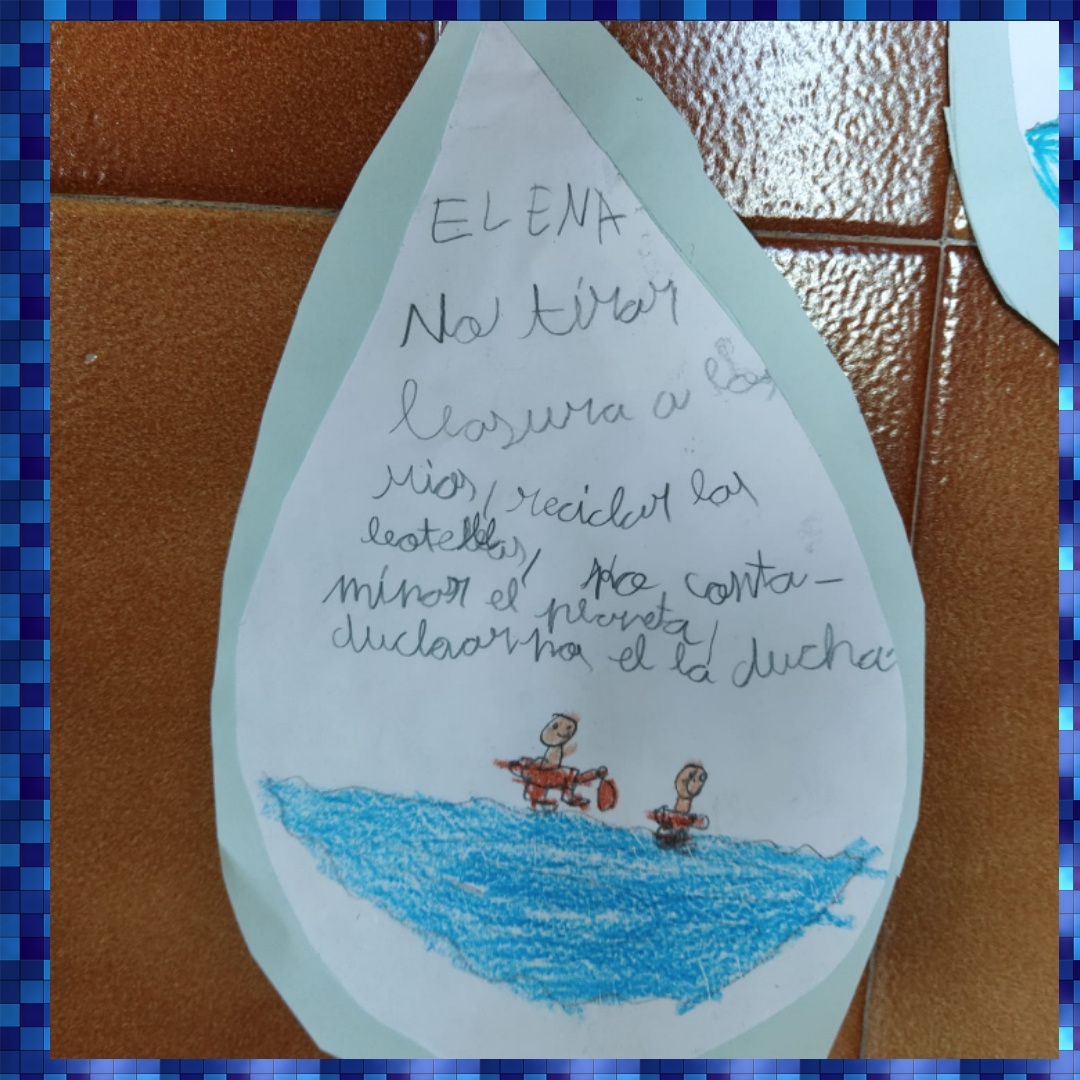 ELENA
No tirar
basura a los
rios, reciclar las
botellas, No conta-
minar el planeta,
el la ducha